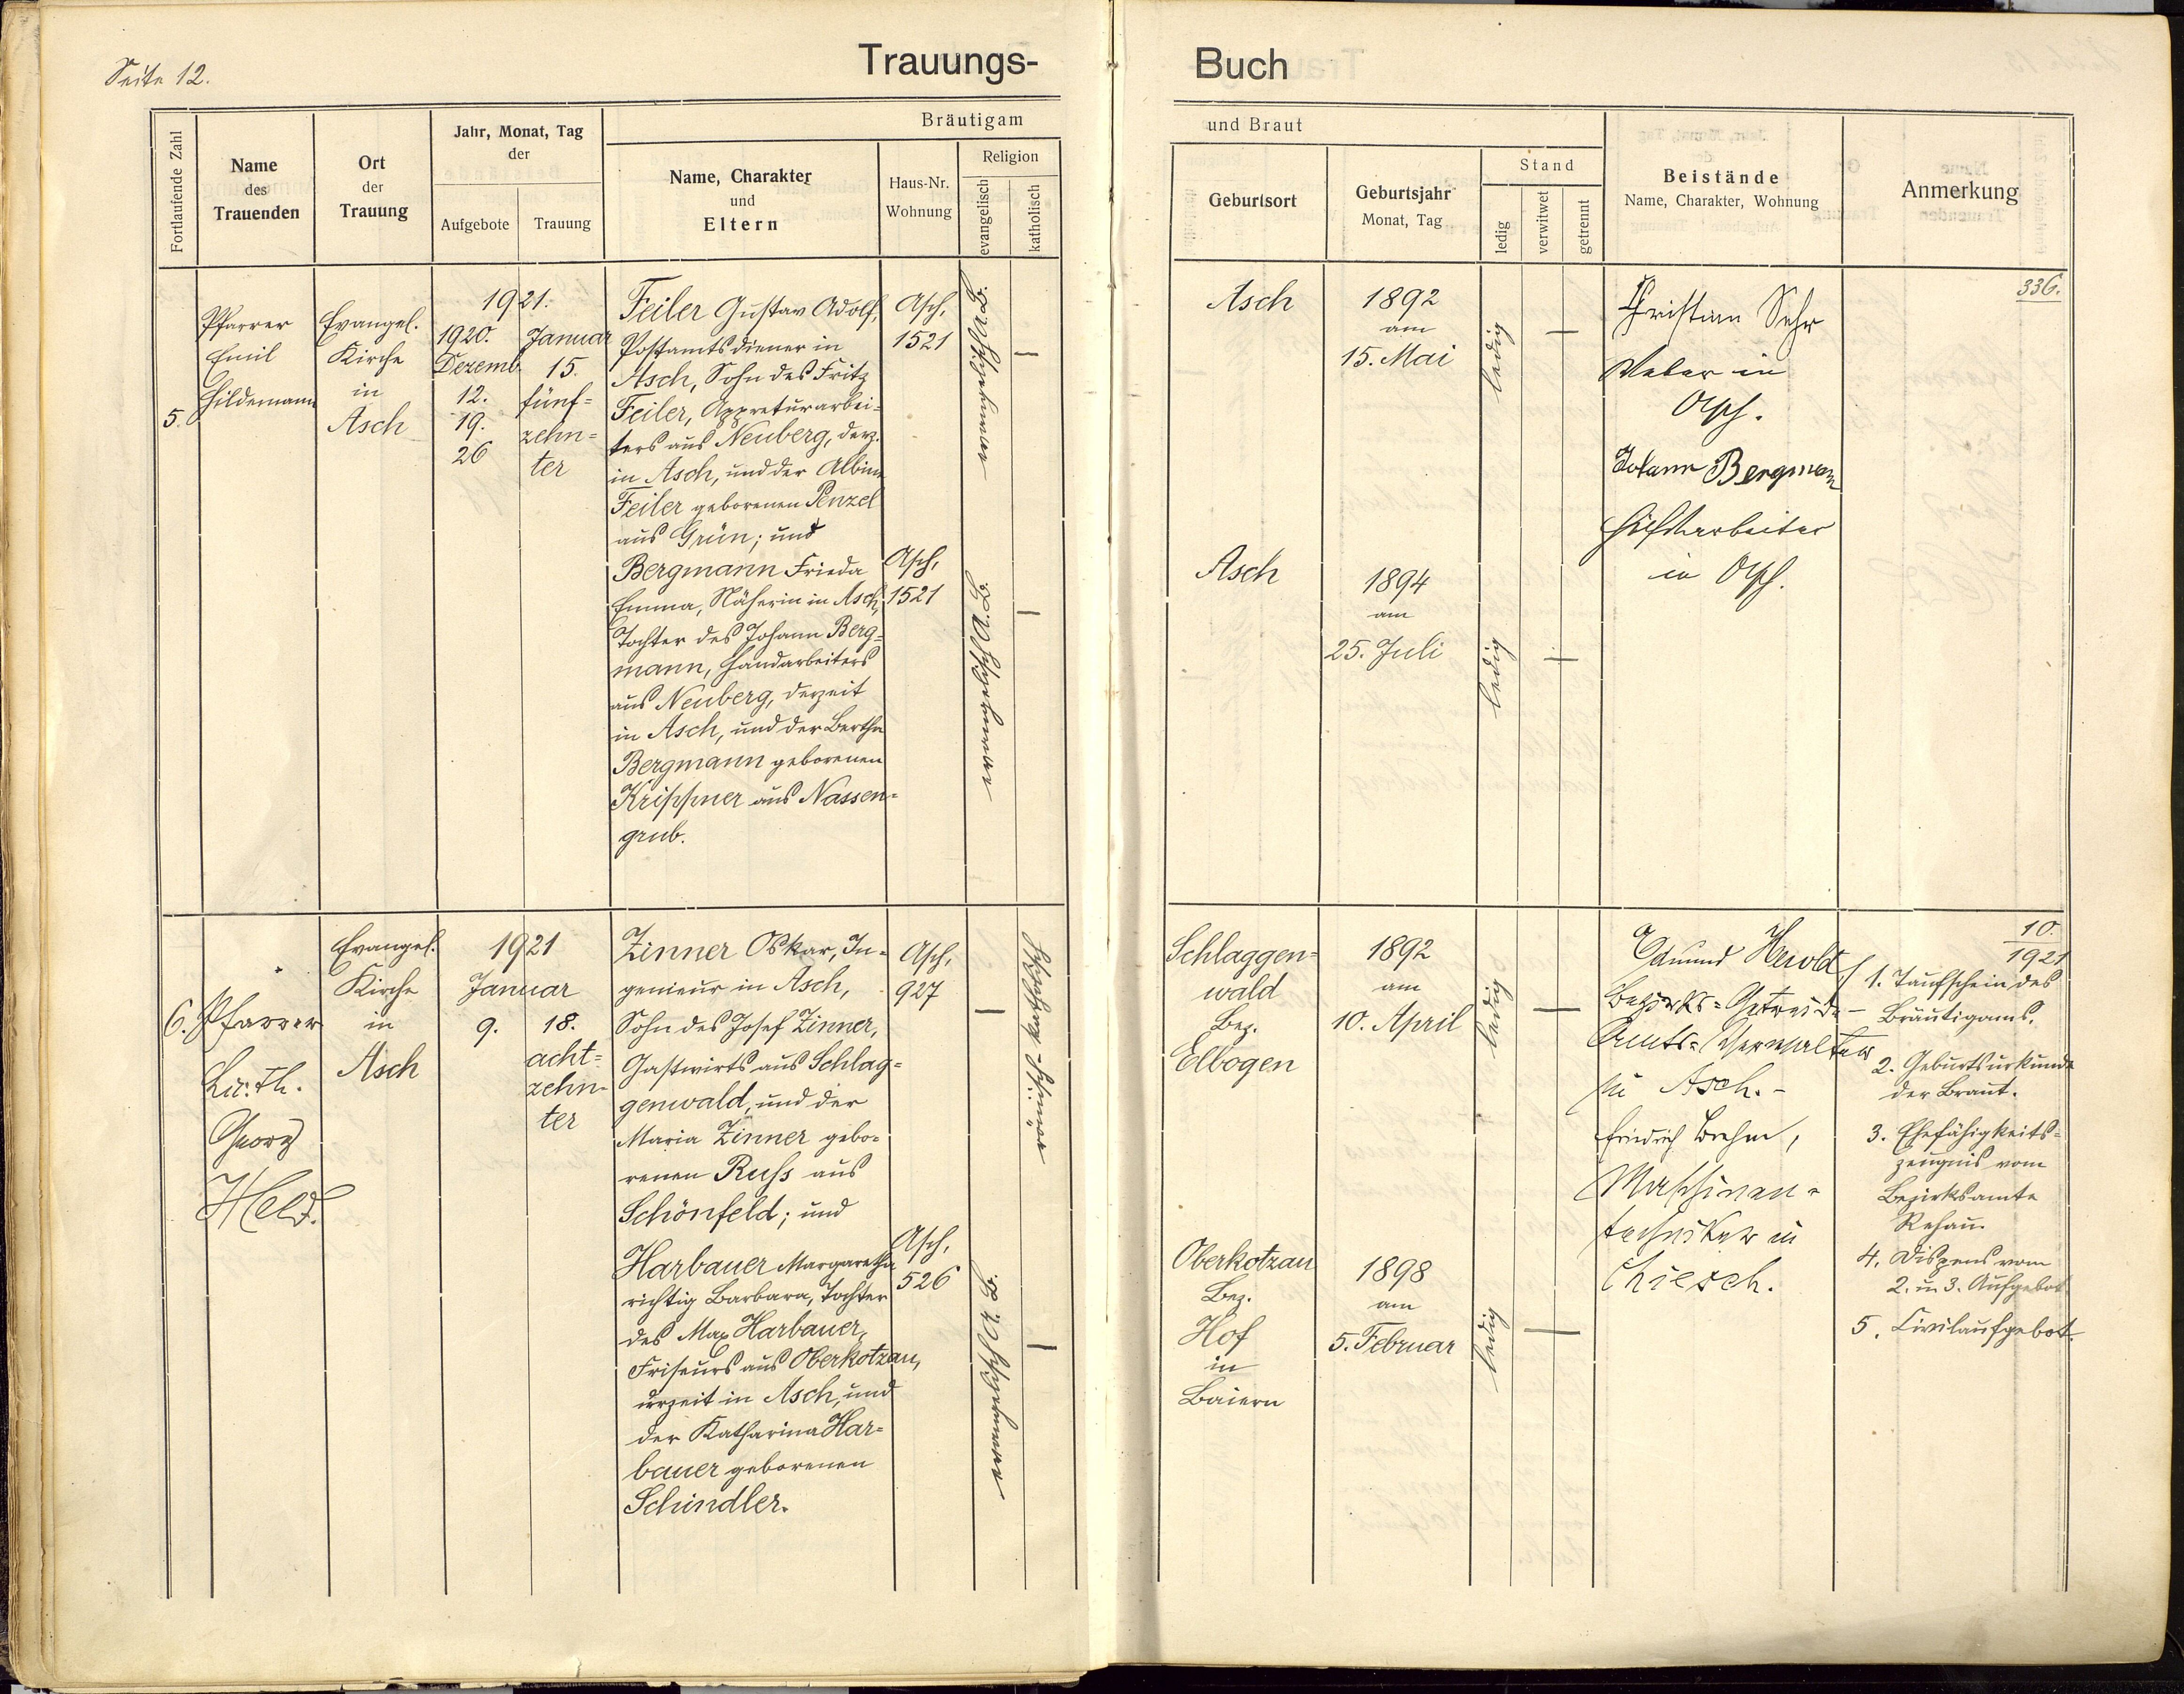 Seite 12.
Trauungs-
Buch
Fortlaufende Zahl
Name
des
Trauenden
Ort
der
Trauung
Jahr, Monat, Tag
der
Aufgebote
Trauung
Bräutigam
Name, Charakter
und
Eltern
Haus-Nr.
Wohnung
Religion
evangelisch
katholisch
und Braut
Geburtsort
Geburtsjahr
Monat, Tag
Stand
ledig
verwitwet
getrennt
Beistände
Name, Charakter, Wohnung
Anmerkung
5.
Pfarrer
Emil
Hildemann
Evangel.
Kirche
in
Asch
1921.
1920.
Dezemb.
12.
19.
26
Januar
15.
fünf-
zehn-
ter
Feiler Gustav Adolf,
Postamtsdiener in
Asch, Sohn des Fritz
Feiler, Appreturarbei-
ters aus Neuberg, derz.
in Asch, und der Albine
Feiler geborenen Penzel
aus Grün; und
Asch,
1521
Bergmann Frieda
Emma, Näherin in Asch,
Tochter des Johann Berg-
mann, Handarbeiters
aus Neuberg, derzeit
in Asch, und der Bertha
Bergmann geborenen
Krippner aus Nassen-
grub.
Asch,
1521
Asch
1892
am
15. Mai
ledig
Asch
1894
am
25. Juli
ledig
Christian
Weber in
Asch.
Johann Bergmann
in Asch.
336.
6.
Pfarrer
Lic. Th.
Georg
Held.
Evangel.
Kirche
in
Asch
1921
Januar
9.
18.
acht-
zehn-
ter
Zinner Oskar, In-
genieur in Asch,
Sohn des Josef Zinner,
Gastwirts aus Schlag-
genwald, und der
Maria Zinner gebo-
renen Russ aus
Schönfeld; und
Asch,
927
römisch-katholisch
Harbauer Margaretha
richtig Barbara, Tochter
des Max Harbauer,
Friseurs aus Oberkotzau,
derzeit in Asch, und
der Katharina Har-
bauer geborenen
Schindler.
Asch,
526
Schlaggen-
wald
Bez.
Elbogen
1892
am
10. April
ledig
Oberkotzau
Bez.
Hof
in
Baiern
1898
am
5. Februar
ledig
Edmund Herold
Bezirks-Getreide-
Amts-Verwalter
in Asch.-
Friedrich Brehm,
Maschinen-
techniker in
Chiesch.
10.
1921
1. Taufschein des
Bräutigams.
2. Geburtsurkunde
der Braut.
3. Ehefähigkeits-
zeugnis vom
Bezirksamte
Rehau.
4. Dispens vom
2. u. 3. Aufgebot
5. Civilaufgebot.